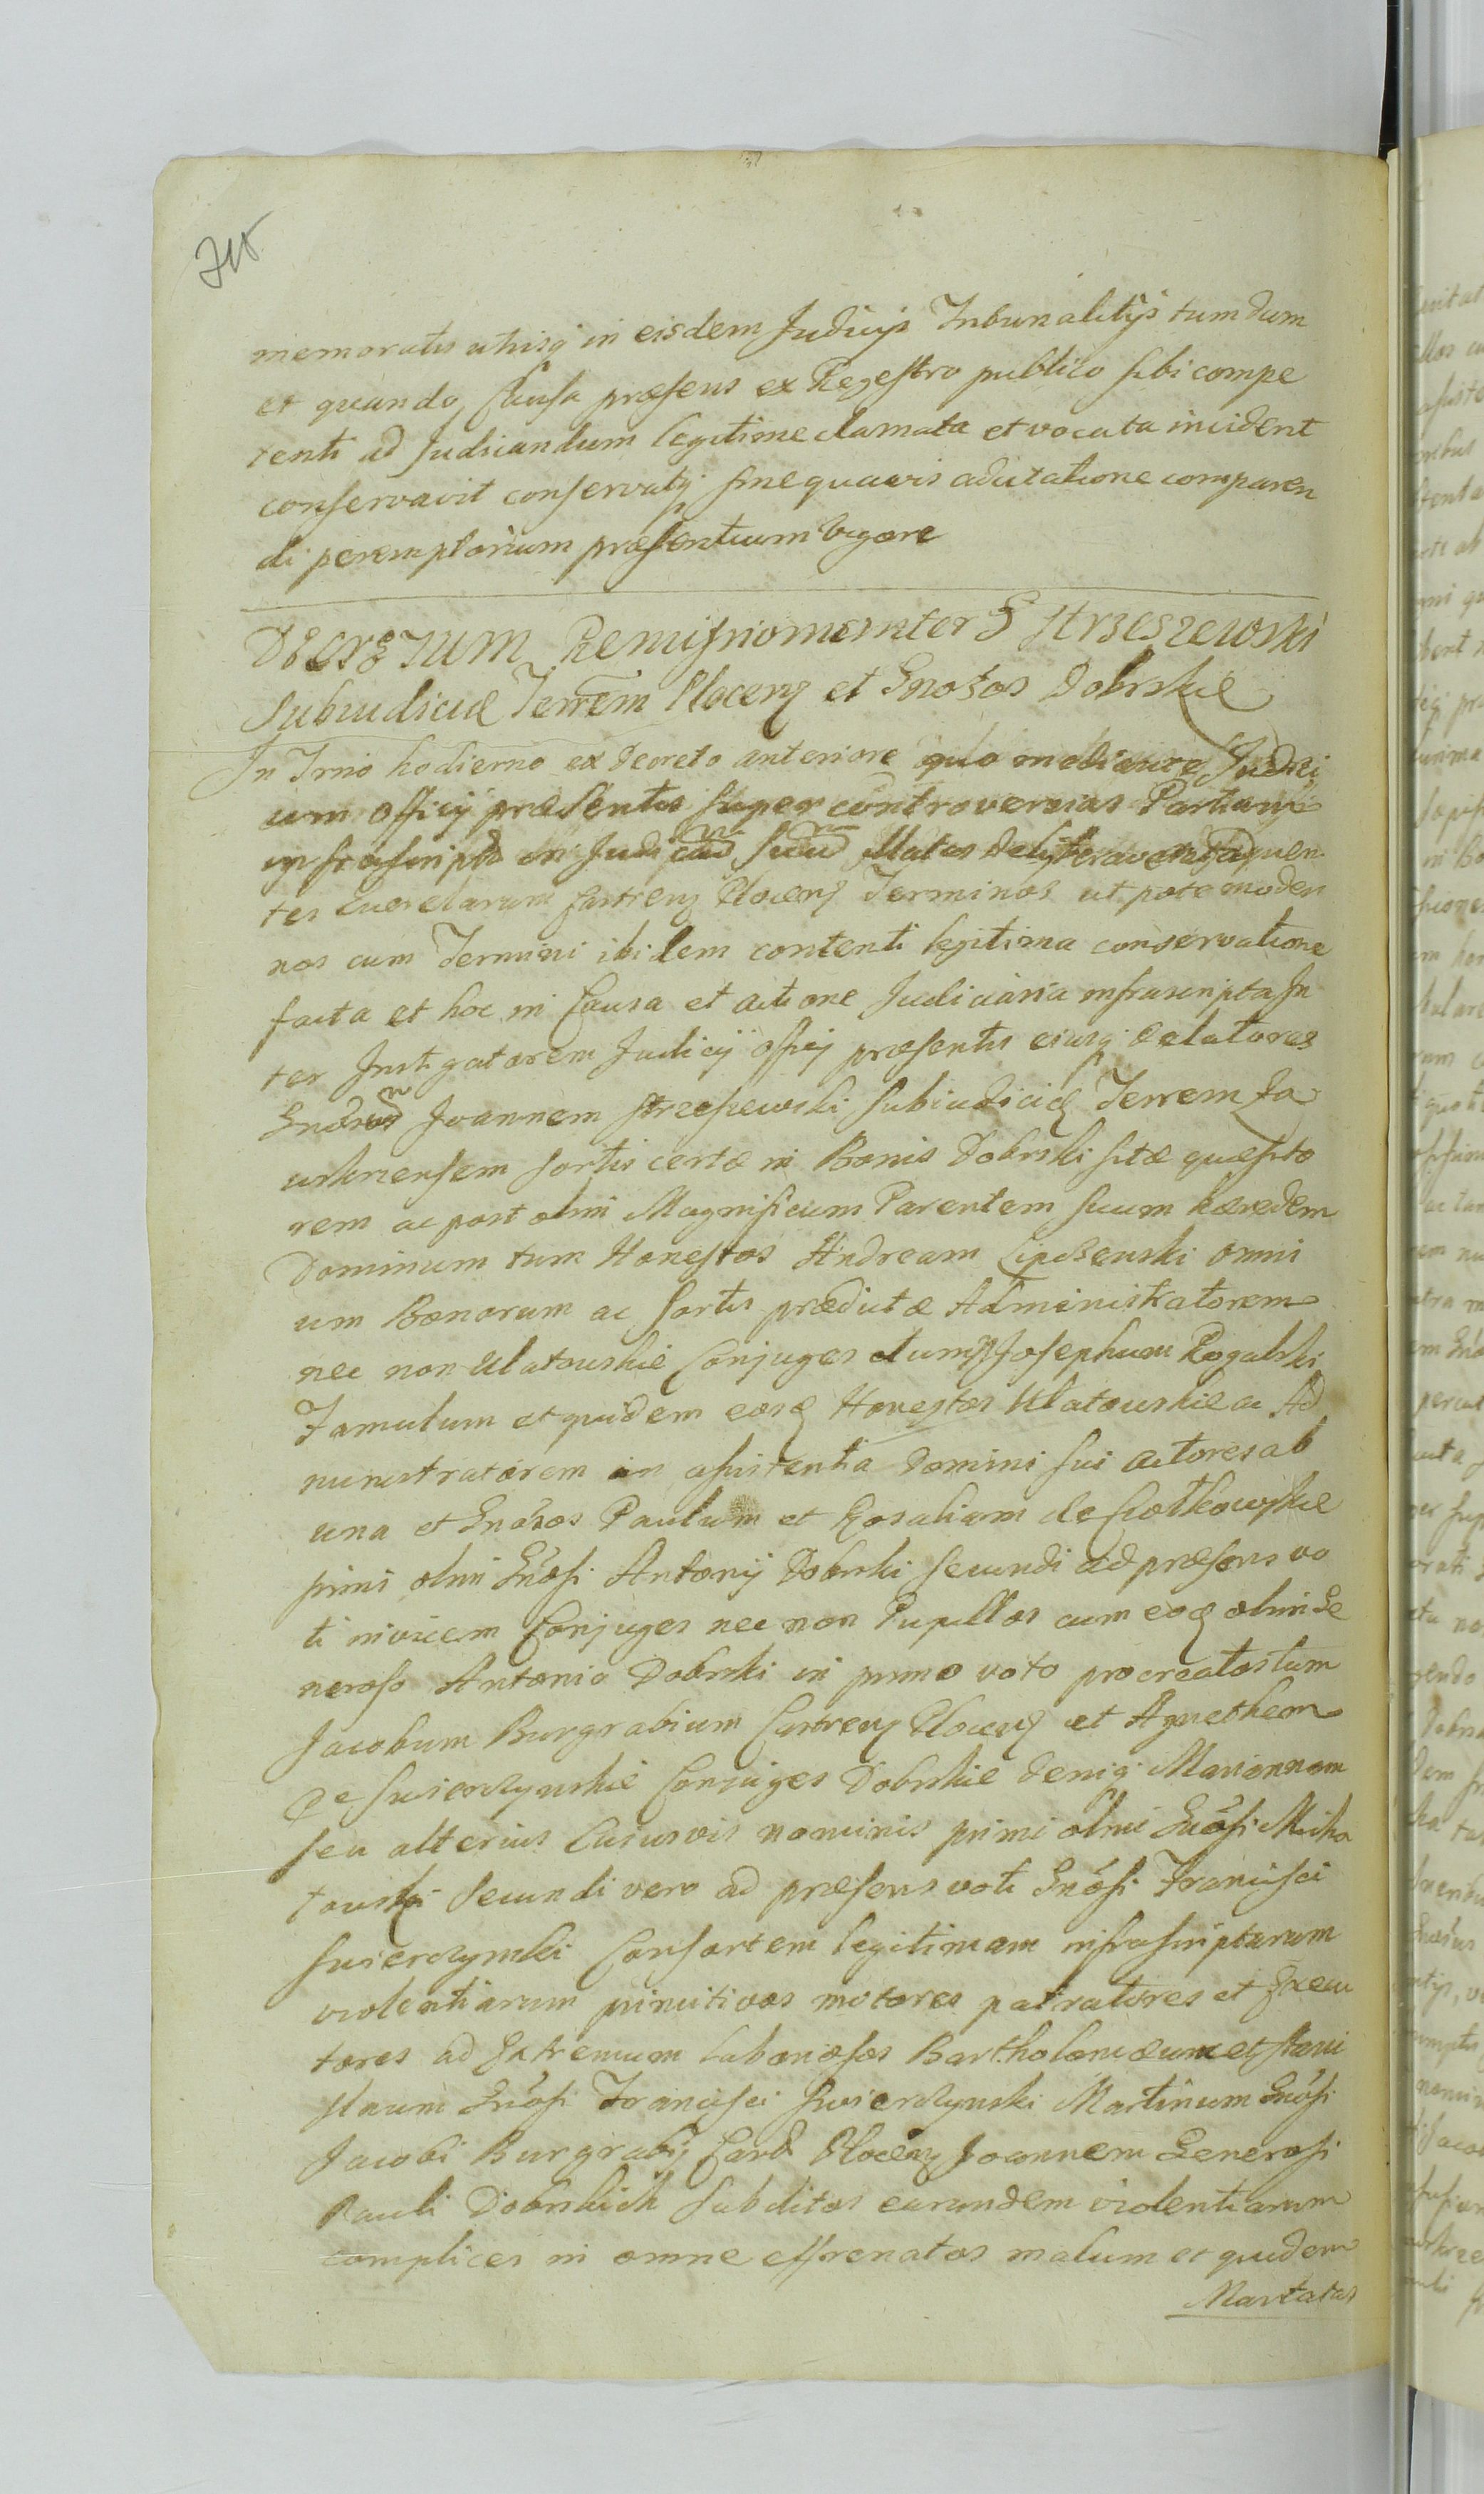 710
memoratis utrisq in eisdem Judicijs Tribunalitijs tum dum
et quando Causa præsens ex Regestro publico sibi compe
tenti ad Judicandum legitime clamata et vocata inciderit
conservavit conservatq sine quavis adcitatione comparen
di peremptorium præsentium vigore
DECRETUM Remissionis inter G Strzeszewski
Subiudicem Terrem Plocen et Gnosos Dobrskie
In Trno hodierno ex Decreto anteriore quo mediante Judici
um officij præsentis super controversias Partium
infrascriptas in Judicium suum illatas deliberaverat
ter Querelarum Castren Plocen Terminos ut pote moder
nos cum Termini ibidem contenti legitima conservatione
facta et hoc in Causa et actione Judiciaria infrascripta In
ter Instigatorem Judicij officij præsentis eiusq delatores
Gnosum Joannem Strzeszewski Subiudicem Terrem Za
wskrzensem sortis certæ in Bonis Dobrski sitæ quæsito
rem ac post olim Magnificum Parentem suum hæredem
Dominum tum Honestos Andream Lipczenski omni
um Bonorum ac sortis prædictæ Administratorem
nec non Ulatowskie Conjuges tum Josephum Rogalski
Famulum et quidem eosq Honestos Ulatowskie ac Ad
ministratorem in assistentia Domini sui actores ab
una et Gnosos Paulum et Rosaliam de Ciołkowskie
primi olim Gnosi Antonij Dobrski secundi ad præsens vo
ti invicem Conjuges nec non Pupillos cum eoq olim Ge
neroso Antonio Dobrski in primo voto procreatos tum
Jacobum Burgrabium Castren Plocen et Agnethem
de Swierczynskie Conjuges Dobrskie deniq Mariannam
seu alterius cuiusvis nominis primi olim Gnosi Micha
towski secundi vero ad præsens voti Gnosi Francisci
Swierczynski Consortem legitimam infrascriptarum
violentiarum primitivos motores patratores et Execu
tores ad Extremum Laboriosos Bartholomæum et Stani
slaum Gnosi Francisci Swierczynski Martinum Gnosi
Jacobi Burgrabij Castr Plocen Joannem Generosi
Pauli Dobrskich subditos earundem violentiarum
complices in omne effrenatos malum et quidem
Martatus